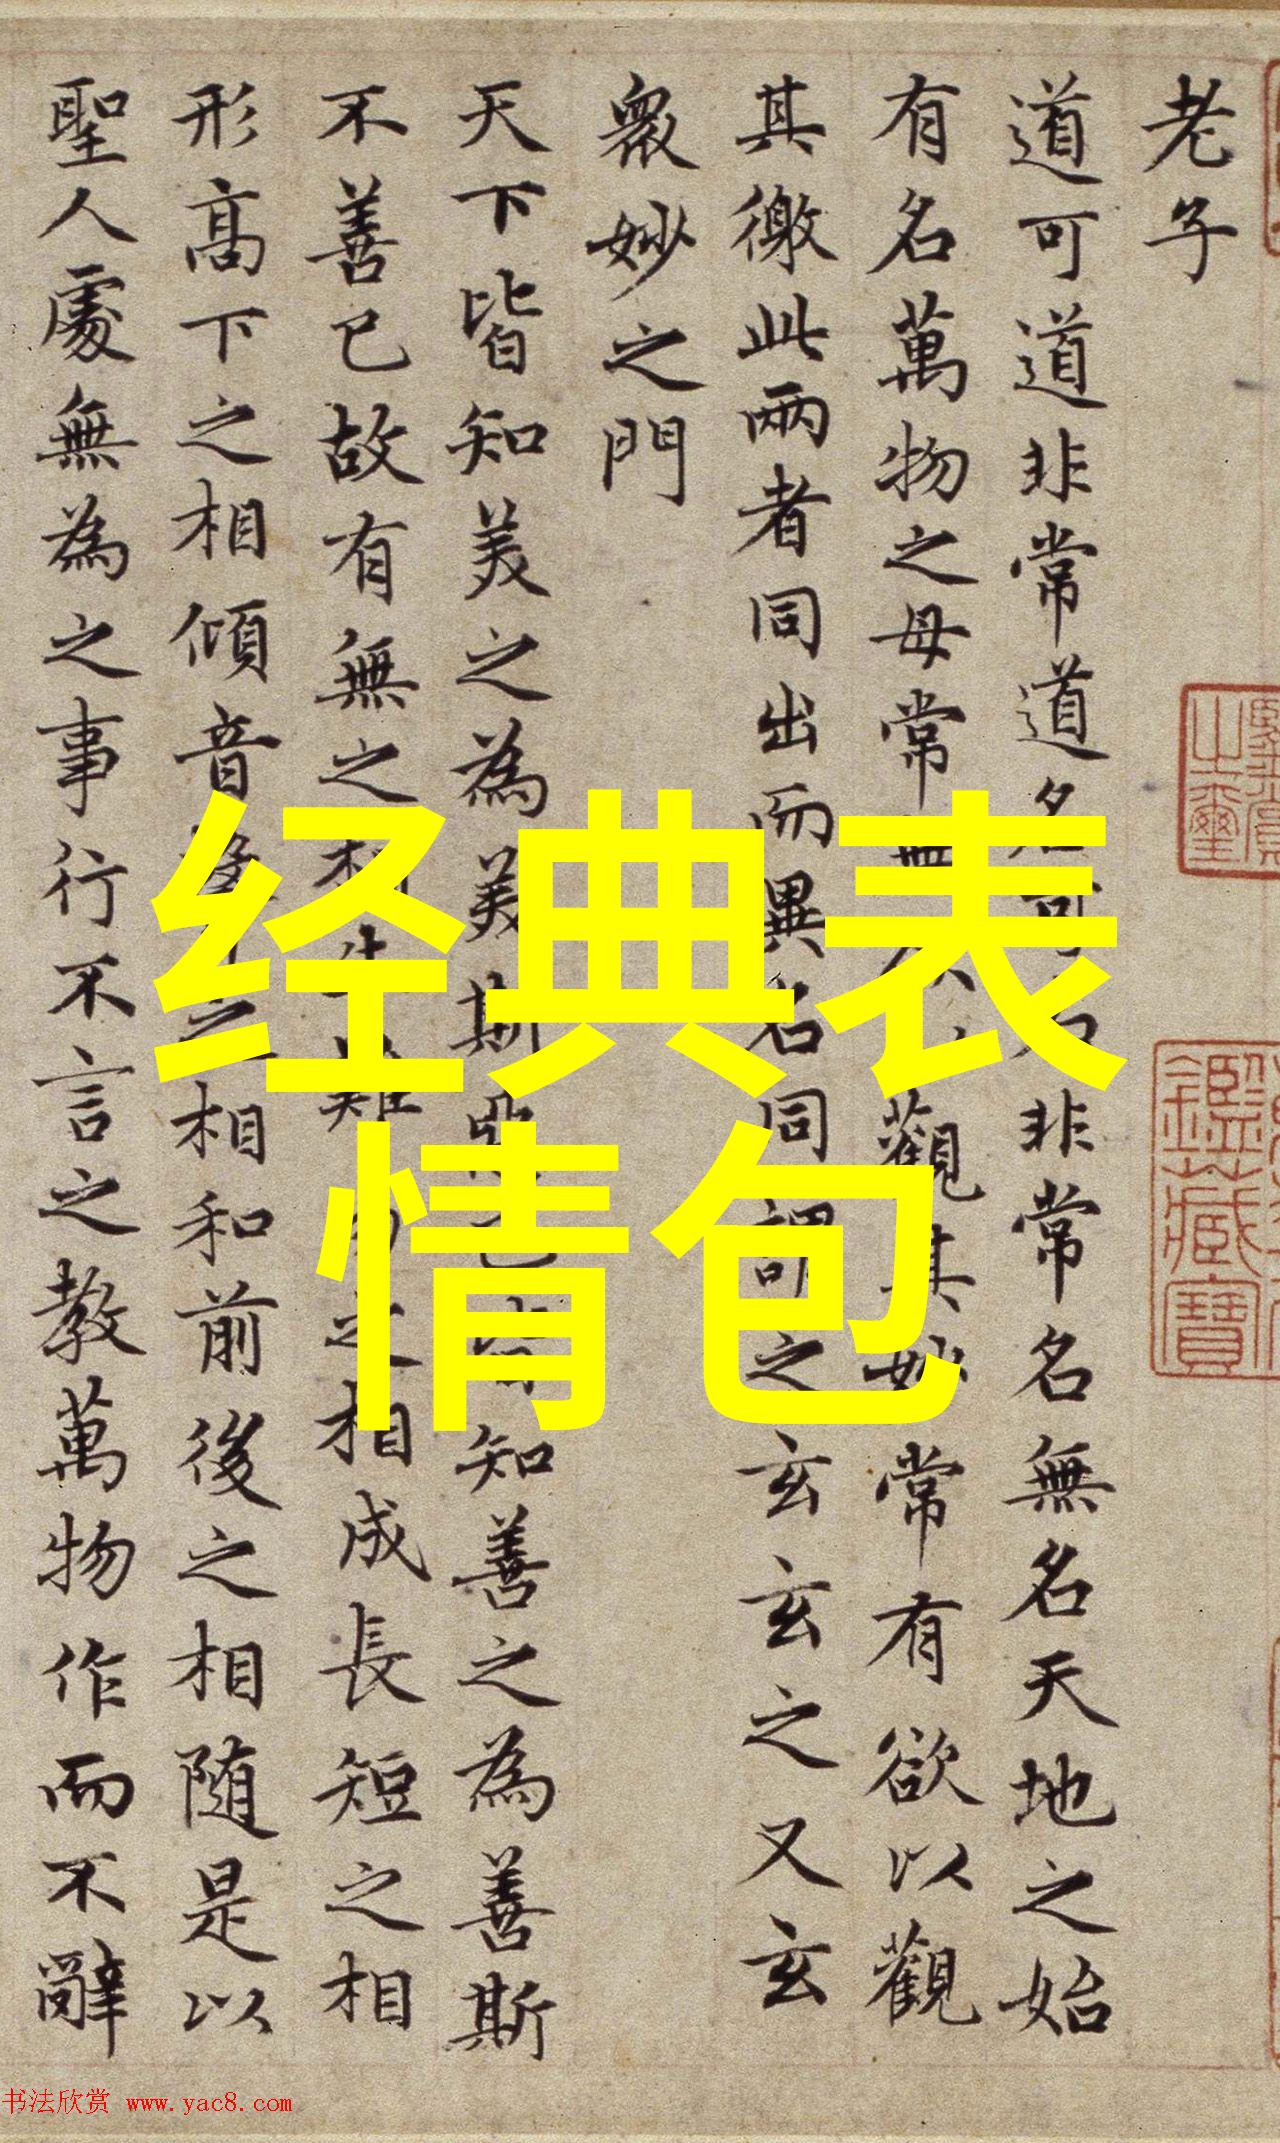 老子
道可道非常道名可名非常名無名天地之始
有名萬物之母常無欲以觀其妙常有欲以觀
其徼此兩者同出而異名同謂之玄玄之又玄
眾妙之門
天下皆知美之為美斯惡已皆知善之為善斯
不善已故有無之相生難易之相成長短之相
形高下之相傾音聲之相和前後之相随是以
聖人處無為之事行不言之教萬物作而不辭
经典表
情包
鑑藏寶
书法欣赏 www.yac8.com